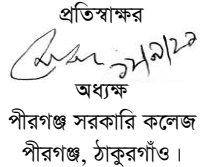 প্রতিস্বাক্ষর
অধ্যক্ষ
পীরগঞ্জ সরকারি কলেজ
পীরগঞ্জ, ঠাকুরগাঁও।